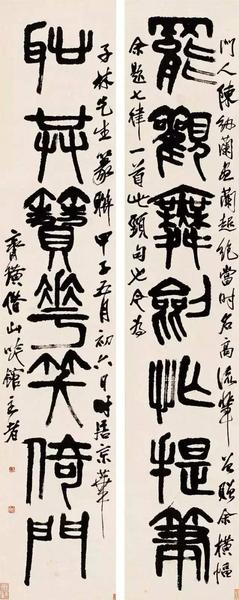 門人陳紉蘭畫蘭超絕當時名高流輩贈余橫幅
罷觀舞劍忙提筆
余題七律一首此頸句也今為
子林先生篆聯甲子五月初六日時居京華
恥共簪花笑倚門
齊璜借山吟館主者